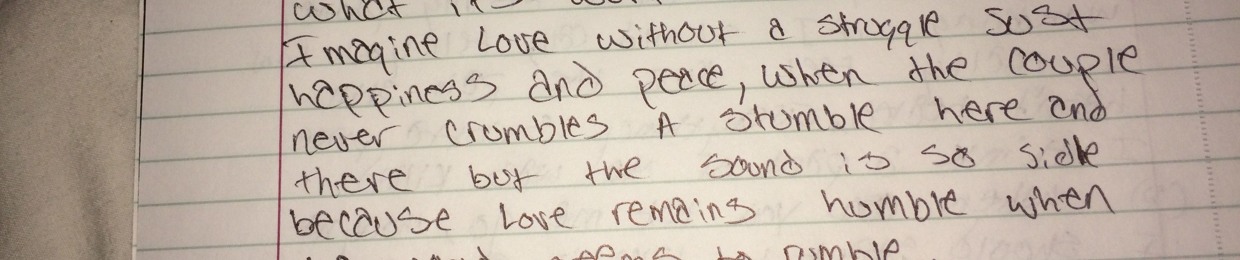 what
Imagine Love without a struggle Just
happiness and peace, when the couple
never crumbles A stumble here and
there but the sound is so sidle
because Love remains humble when
to rumble